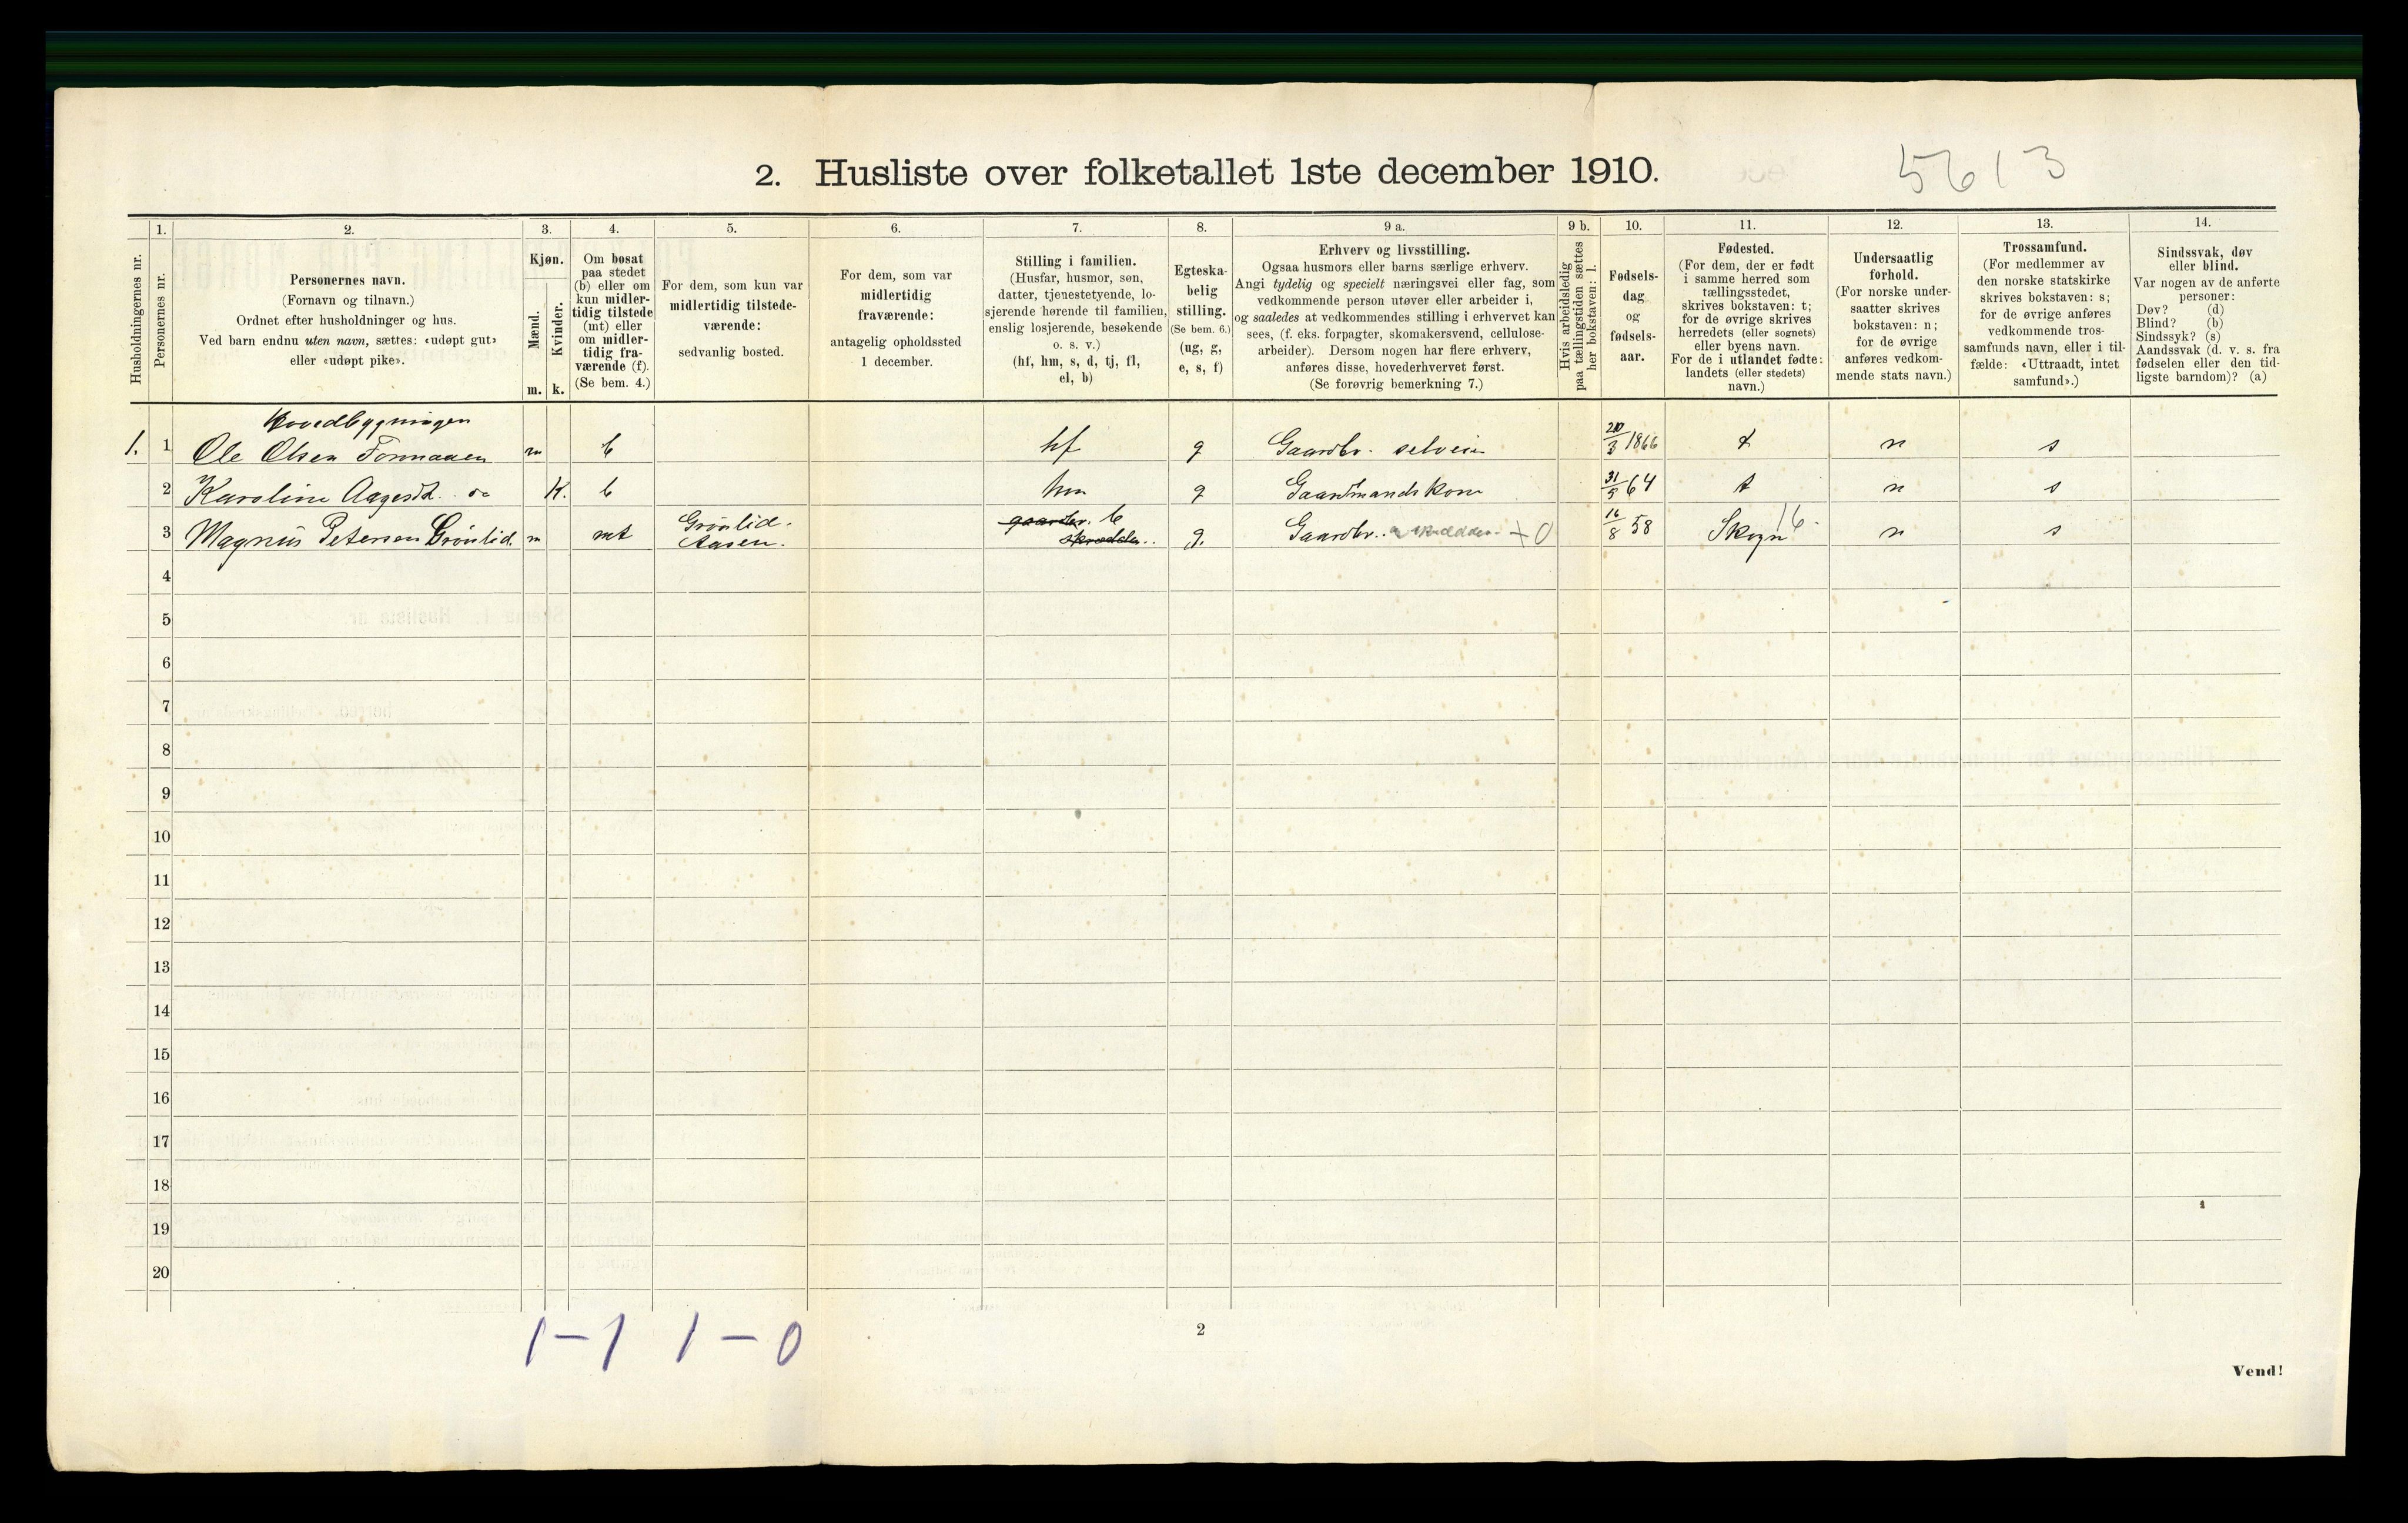 2. Husliste over folketallet 1ste december 1910.
5613
Husholdningernes nr.
1.
Personernes nr.
2.
Personernes navn.
(Fornavn og tilnavn.)
Ordnet efter husholdninger og hus.
Ved barn endnu uten navn, sættes: «udøpt gut»
eller «udøpt pike».
3.
Kjøn.
Mænd.
m.
Kvinder.
k.
4.
Om bosat
paa stedet
(b) eller om
kun midler-
tidig tilstede
(mt) eller
om midler-
tidig fra-
værende (f).
(Se bem. 4.)
5.
For dem, som kun var
midlertidig tilstede-
værende:
sedvanlig bosted.
6.
For dem, som var
midlertidig
fraværende:
antagelig opholdssted
1 december.
7.
Stilling i familien.
(Husfar, husmor, søn,
datter, tjenestetyende, lo-
sjerende hørende til familien,
enslig losjerende, besøkende
o. s. v.)
(hf, hm, s, d, tj, fl,
el, b)
8.
Egteska-
belig
stilling.
(Se bem. 6.)
(ug, g,
e, s, f)
9 a.
Erhverv og livsstilling.
Ogsaa husmors eller barns særlige erhverv.
Angi tydelig og specielt næringsvei eller fag, som
vedkommende person utøver eller arbeider i,
og saaledes at vedkommendes stilling i erhvervet kan
sees, (f. eks. forpagter, skomakersvend, cellulose-
arbeider). Dersom nogen har flere erhverv,
anføres disse, hovederhvervet først.
(Se forøvrig bemerkning 7.)
9 b.
Hvis arbeidsledig
paa tællingstiden sættes
her bokstaven: l.
10.
Fødsels-
dag
og
fødsels-
aar.
11.
Fødested.
(For dem, der er født
i samme herred som
tællingsstedet,
skrives bokstaven: t;
for de øvrige skrives
herredets (eller sognets)
eller byens navn.
For de i utlandet fødte:
landets (eller stedets)
navn.)
12.
Undersaatlig
forhold.
(For norske under-
saatter skrives
bokstaven: n;
for de øvrige
anføres vedkom-
mende stats navn.)
13.
Trossamfund.
(For medlemmer av
den norske statskirke
skrives bokstaven: s;
for de øvrige anføres
vedkommende tros-
samfunds navn, eller i til-
fælde: «Uttraadt, intet
samfund».)
14.
Sindssvak, døv
eller blind.
Var nogen av de anførte
personer:
Døv? (d)
Blind? (b)
Sindssyk? (s)
Aandssvak (d. v. s. fra
fødselen eller den tid-
ligste barndom)? (a)
Hovedbygningen
1. 1 Ole Olsen m b hf g Gaardbr. selveier 3 1866 t n s
2 Karoline Aagesd. do K. b hm g Gaardmandskone 31/5 64 t n s
3 Magnus Petersen Grönlid. m mt Grönlid. Aasen. gaardbr. b skrædder. g. Gaardbr. + 0 16/8 58 Skogn 16. n s
4
5
6
7
8
9
10
11
12
13
14
15
16
17
18
19
20
1-1 1-0
2
Vend!